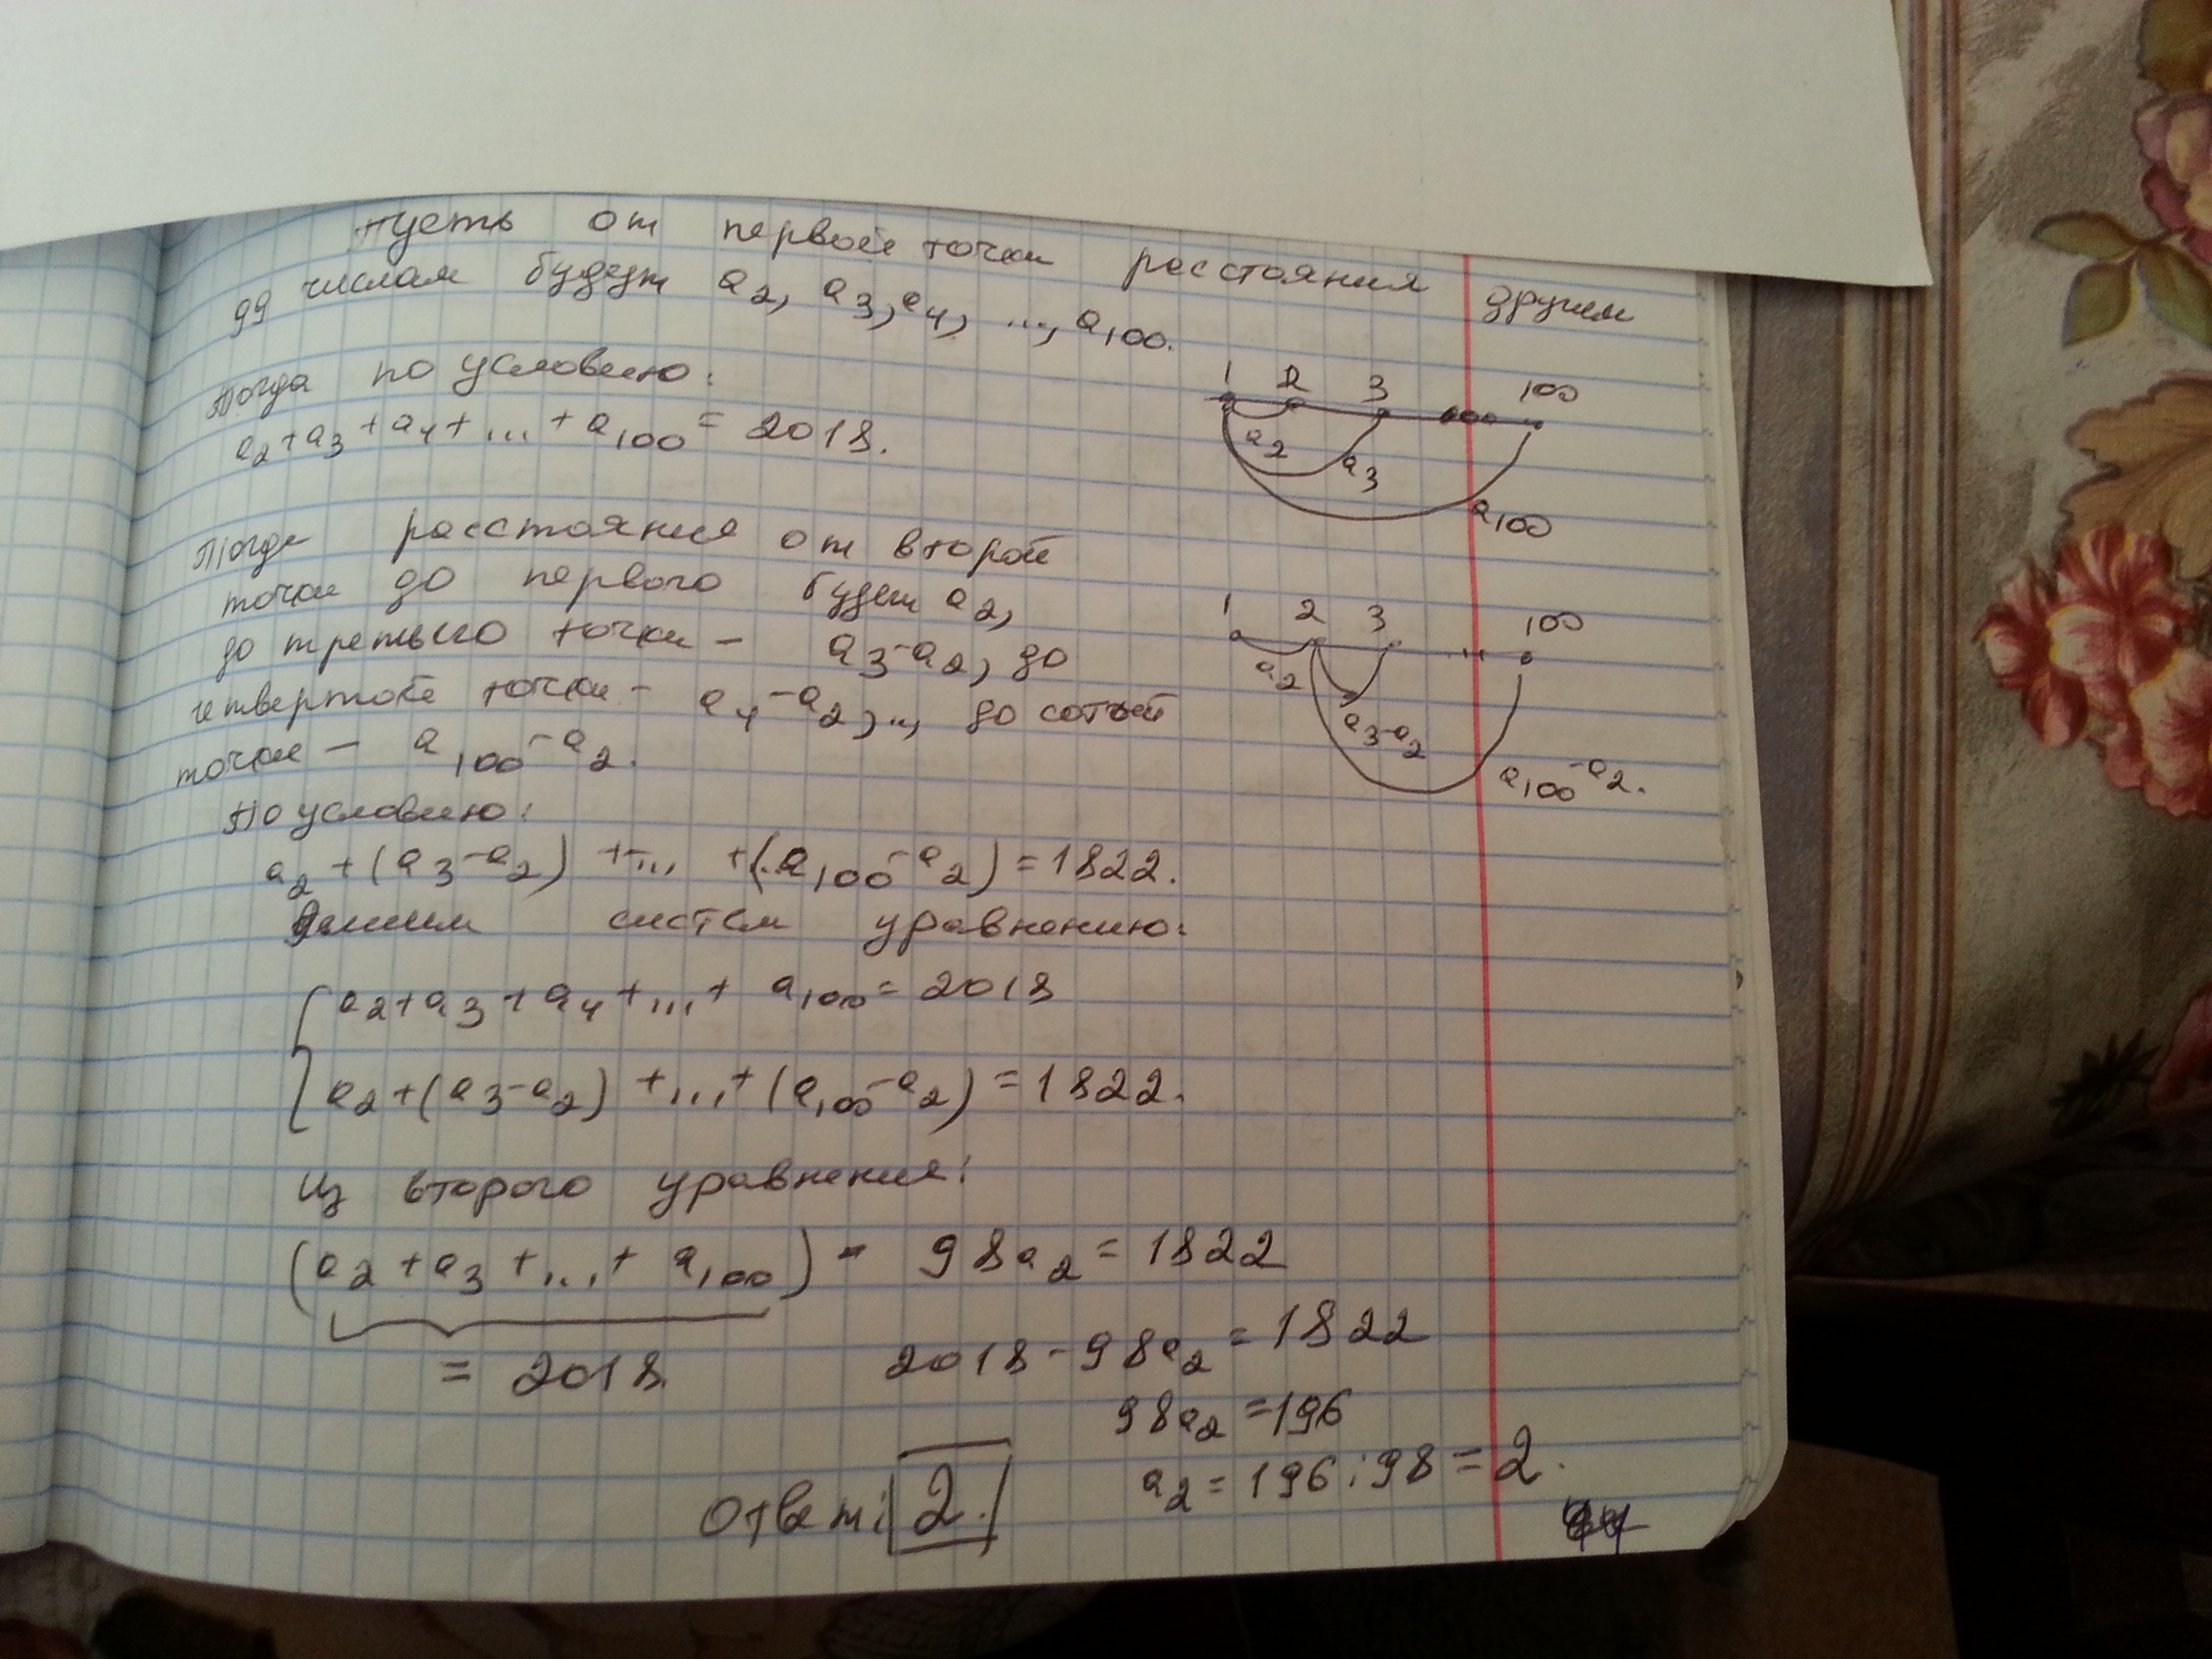 Пусть от первой точки расстояния другим
99 числам будут a₂, a₃, a₄, ..., a₁₀₀.
Тогда по условию:
a₂+a₃+a₄+...+a₁₀₀ = 2018.
1 2 3 100
a₂ a₃ a₁₀₀
Тогда расстояния от второй
точки до первого будет a₂,
до третьего точки - a₃-a₂, до
четвертой точки - a₄-a₂, .., до сотой
точки - a₁₀₀-a₂.
1 2 3 ... 100
a₂ a₃-a₂ a₁₀₀-a₂.
По условию:
a₂+(a₃-a₂)+...+(a₁₀₀-a₂)=1822.
систем уравнению:
a₂+a₃+a₄+...+a₁₀₀=2018
a₂+(a₃-a₂)+...+(a₁₀₀-a₂)=1822.
Из второго уравнения:
(a₂+a₃+...+a₁₀₀)-98a₂=1822
= 2018. 2018-98a₂=1822
98a₂=196
a₂=196:98=2.
Ответ: 2.